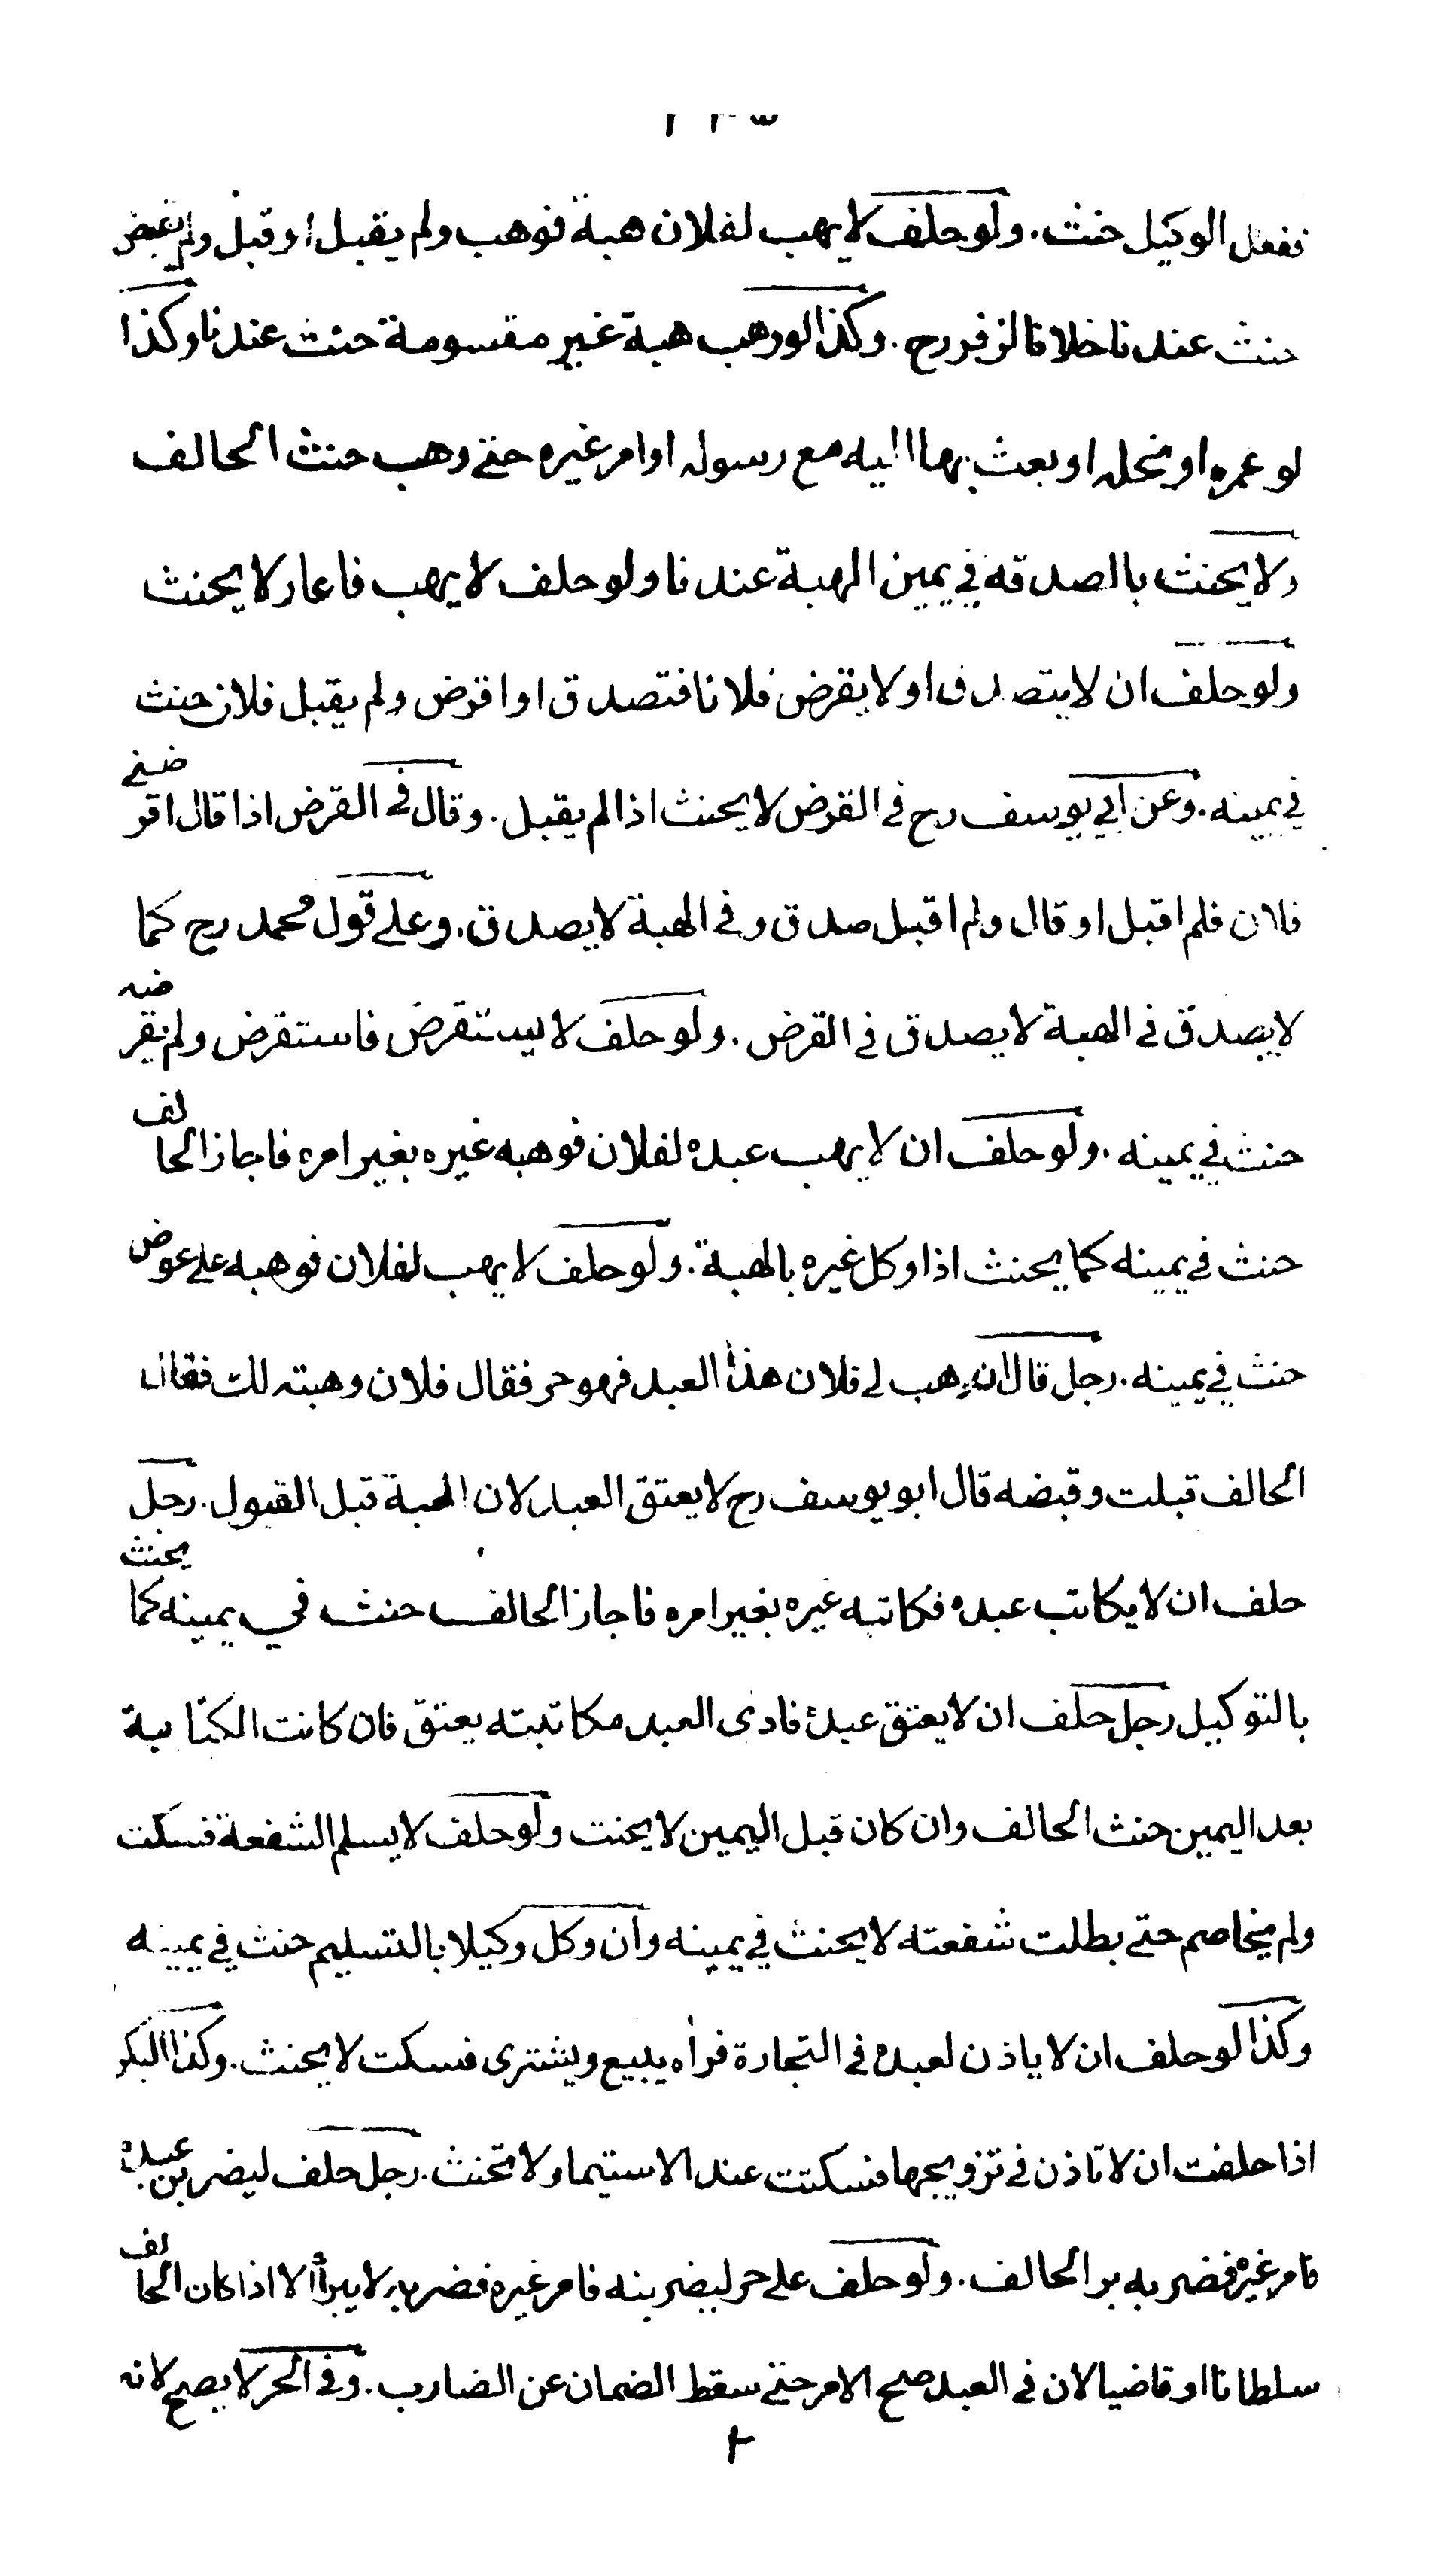 ففعل الوكيل حنث. ولو حلف لا يهب لفلان هبة فوهب ولم يقبل او قبل ولم يقبض
حنث عندنا خلافا لزفر رح. وكذا لو وهب هبة غير مقسومة حنث عندنا وكذا
لو عمره او نحله او بعث بها اليه مع رسوله او امر غيره حتى وهب حنث الحالف
ولا يحنث بالصدقه في يمين الهبة عندنا ولو حلف لا يهب فاعار لا يحنث
ولو حلف ان لا يتصدق او لا يقرض فلانا فتصدق او اقرض ولم يقبل فلان حنث
في يمينه. وعن ابي يوسف رح في القرض لا يحنث اذا لم يقبل. وقال في القرض اذا قال اقرضني
فلان فلم اقبل او قال ولم اقبل صدق وفي الهبة لا يصدق. وعلى قول محمد رح كما
لا يصدق في الهبة لا يصدق في القرض. ولو حلف لا يستقرض فاستقرض ولم يقرضه
حنث في يمينه. ولو حلف ان لا يهب عبده لفلان فوهبه غيره بغير امره فاجاز الحالف
حنث في يمينه كما يحنث اذا وكل غيره بالهبة. ولو حلف لا يهب لفلان فوهبه على عوض
حنث في يمينه. رجل قال ان وهب لي فلان هذا العبد فهو حر فقال فلان وهبته لك فقال
الحالف قبلت وقبضه قال ابو يوسف رح لا يعتق العبد لان الهبة قبل القبول. رجل
حلف ان لا يكاتب عبده فكاتبه غيره بغير امره فاجاز الحالف حنث في يمينه كما يحنث
بالتوكيل رجل حلف ان لا يعتق عبده فادى العبد مكاتبته يعتق فان كانت الكتابة
بعد اليمين حنث الحالف وان كان قبل اليمين لا يحنث ولو حلف لا يسلم الشفعة فسكت
ولم يخاصم حتى بطلت شفعته لا يحنث في يمينه وان وكل وكيلا بالتسليم حنث في يمينه
وكذا لو حلف ان لا ياذن لعبده في التجارة فرأه يبيع ويشترى فسكت لا يحنث. وكذا البكر
اذا حلفت ان لا تاذن في تزويجها فسكتت عند الاستيمار لا تحنث. رجل حلف ليضربن عبده
فامر غيره فضربه بر الحالف. ولو حلف على حر ليضربنه فامر غيره فضربه لا يبرأ الا اذا كان الحالف
سلطانا او قاضيا لان في العبد صح الامر حتى سقط الضمان عن الضارب. وفي الحر لا يصح لانه